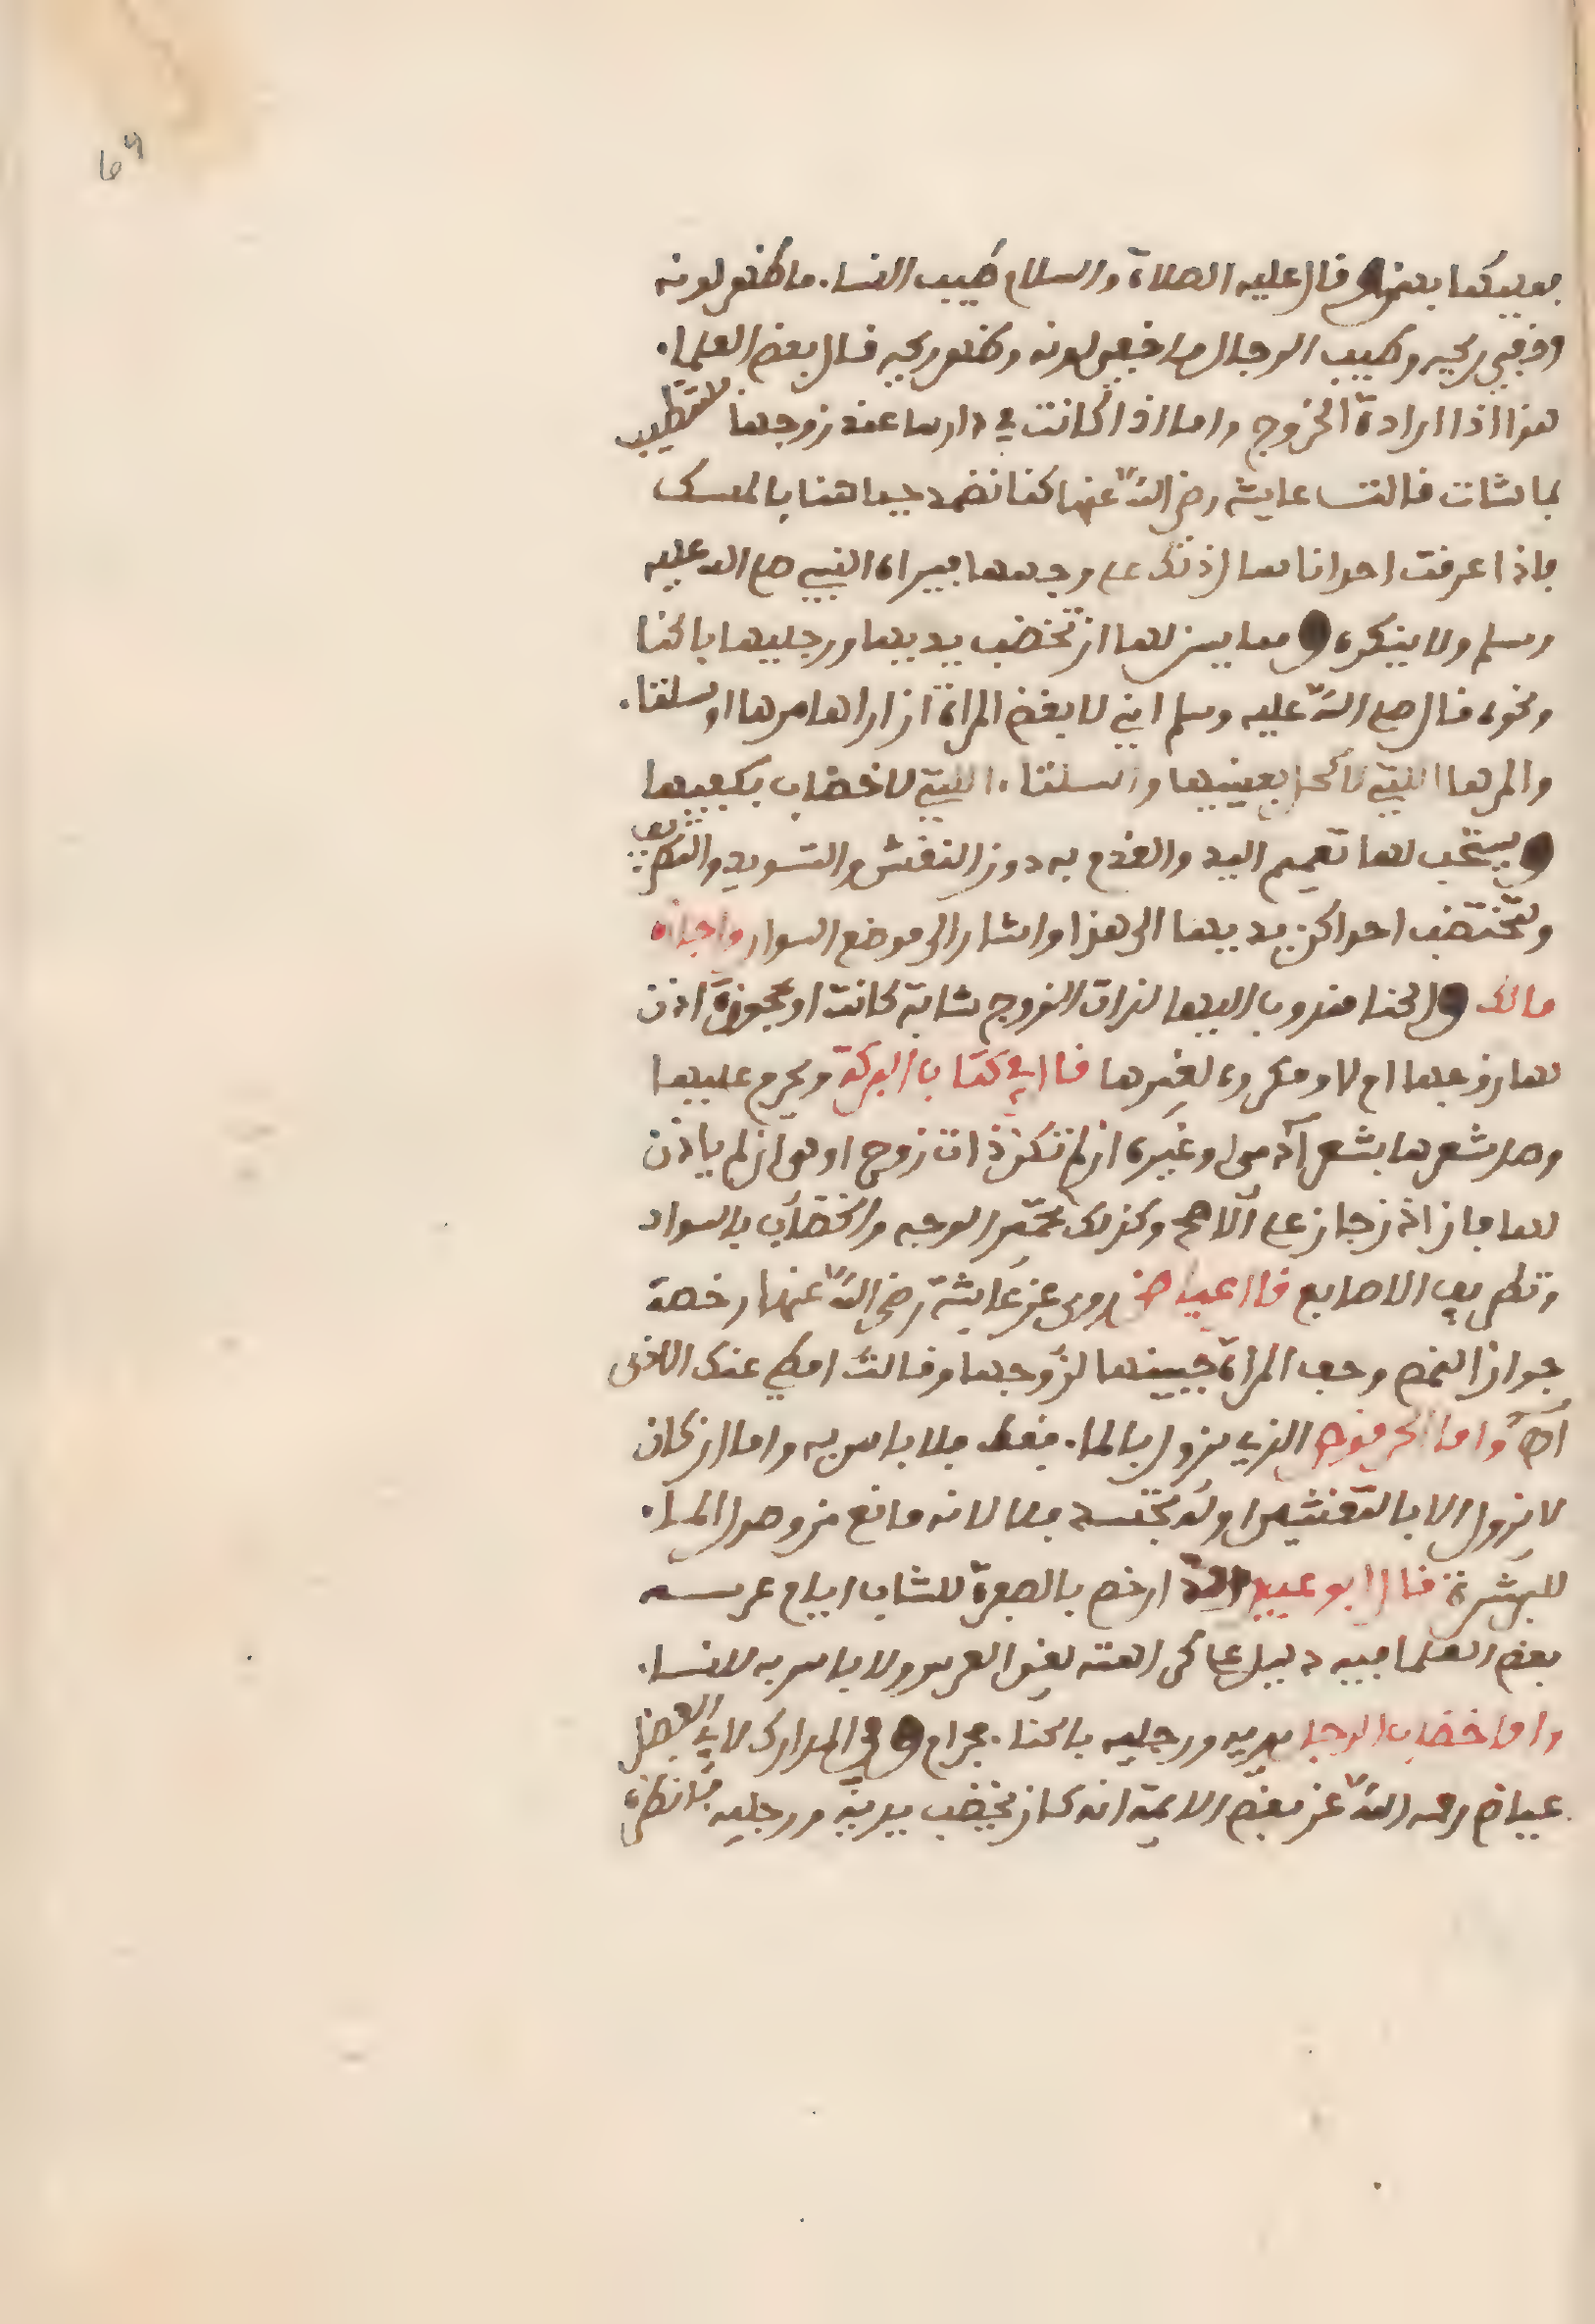 وقال عليه الصلاة والسلام طيب النساء ما ظهر لونه
وخفي ريحه وطيب الرجال ما خفي لونه وظهر ريحه قال بعض العلماء
هذا اذا ارادة الخروج واما اذا كانت في دارها عند زوجها فلتطيب
بما شات قالت عايشة رضي الله عنها كنا نضمد جباهنا بالمسك
فاذا عرفت احدانا سال ذلك على وجهها فيراه النبي صلى الله عليه
وسلم ولا ينكره ومما يسن لها ان تخضب يديها ورجليها بالحنا
ونحوه قال صلى الله عليه وسلم اني لابغض المراة ان اراها مرها او سلتاء
والمرها التي لا كحل بعينيها والسلتاء التي لا خضاب بكفيها
ويستحب لها تعميم اليد والقدم به دون النقش والتسويد والتطريف
ولتختضب احداكن يديها الى هذا واشار الى موضع السوار واجازه
مالك والحنا مندوب اليها لذات الزوج شابة كانت او عجوزة اذن
لها زوجها ام لا ومكروه لغيرها قال في كتاب البركة ويحرم عليها
وصل شعرها بشعر آدمي او غيره ان لم تكن ذات زوج او هو ان لم ياذن
لها فان اذن جاز على الاصح وكذلك تحمير الوجه والخضاب بالسواد
وتطريف الاصابع قال عياض روي عن عايشة رضي الله عنها رخصة
جواز النمص وحف المراة جبينها لزوجها وقالت اميطي عنك الاذى
اهـ واما الحرقوص الذي يزول بالماء فقط فلا باس به واما ان كان
لا يزول الا بالتقشير او له تجسد فلا لانه مانع من وصول الماء
للبشرة قال ابو عبيد الله ارخص بالصفرة للشاب ايام عرسه
بعض العلما فيه دليل على كراهته لغير العرس ولا باس به للنساء
واما خضاب الرجل يديه ورجليه بالحناء فحرام وفي المدارك لابي الفضل
عياض رحمه الله عن بعض الايمة انه كان يخضب يديه ورجليه فانظره